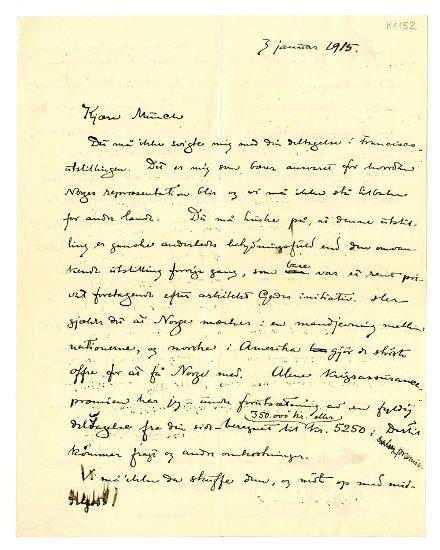 K1152
3 januar 1915.
Kjære Munch
Du må ikke svigte mig med din deltagelse i Francisco-
utstillingen. Det er mig som bærer ansvaret for hvordan
Norges repræsentation blir og vi må ikke stå tilbake
for andre lande. Du må huske på, at denne utstil-
ling er ganske anderledes betydningsfuld end den omvan-
kende utstilling forrige gang, som bare var et rent pri-
vat foretagende efter arkitekt initiativ. Her
gjælder det at Norge mærkes i en mandjevning mellem
nationerne, og norske i Amerika gjör de störste
offre for at få Norge med. Alene krigsassurance
præmien har jeg under forutsætning av en fyldig
deltagelse fra din side beregnet til kr. 5250
350.000 kr.
kommer fragt og andre omkostninger.
Vi må ikke da skuffe dem, og möt op med